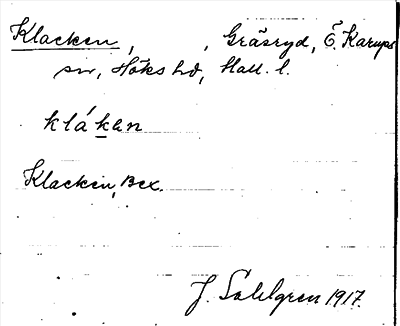 Klacken, , Gräsryd, Ö. Karups
sn, Höks hd, Hall. l.
klákan
Klacken, Bex.
J. Sahlgren 1917